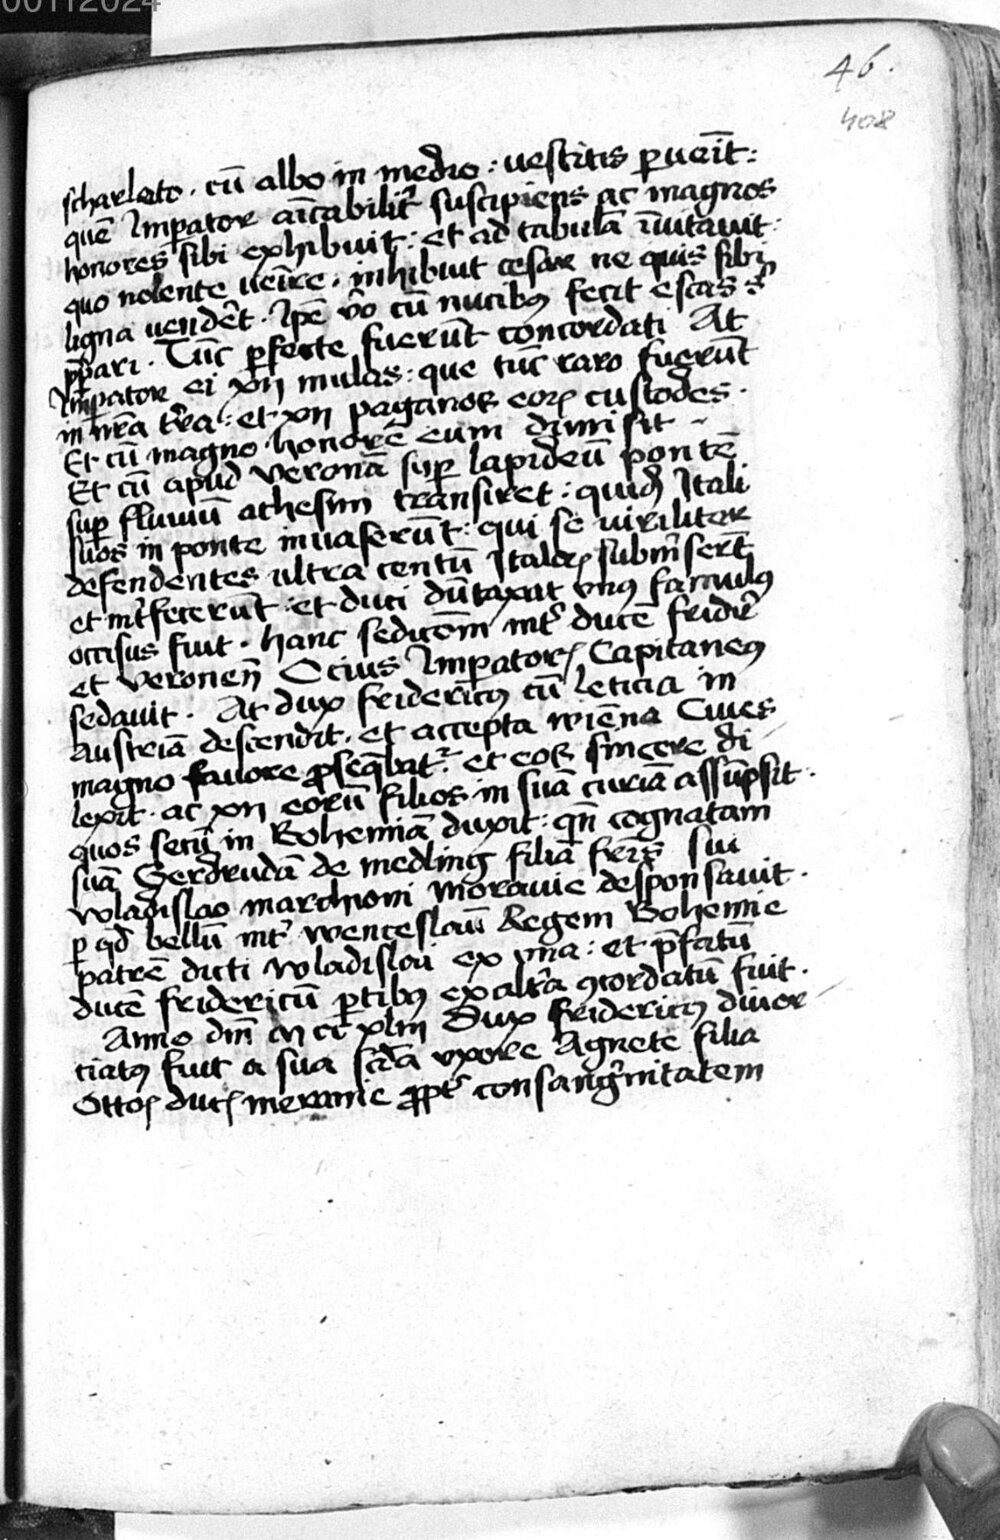 00112024
46.
408
scharlato . cū albo in medio : vestitis puēit :
quē Imperator aīcabilit̄ suscipiens ac magnos
honores sibi exhibuit : et ad tabulā īuitauit
quo nolente veīre . inhibuit cesar ne quis sibi
ligna vendēt . Ipē v̄o cū nucibꝰ fecit escas s
ppari . Tūc pfecte fuerūt concordati At
Imperator ei xij mulas : que tūc raro fuerūt
in nr̄a tr̄a : et xij paganos eoꝝ custodes .
Et cū magno honorē eum dimisit
Et cū apud veronā suꝑ lapideū pontē
suꝑ fluuiū athesim transiret : quidā Itali
suos in ponte inuaserūt : qui se viriliter
defendentes ultra centū Italoꝝ submserūt
et int̄fecerūt : et duci dūtaxat vnꝰ famulꝰ
occisus fuit . hanc sedicōem int̄ ducē frider̄
et veronen̄ Ocius Imperatoꝝ Capitaneꝰ
sedauit . At dux fridericꝰ cū leticia in
austriā descendit . et accepta wiēna Ciues
magno fauore ꝓseq̄bat̄ : et eos sincere di
lexit . ac xij eorū filios in suā curiā assūpsit .
quos secū in Bohemiā duxit : qn̄ cognatam
suā Gerdrudā de medling filiā fr̄is sui
wladislao marchioni moravie desponsauit .
ꝑ qd̄ bellū int̄ wenceslaū Regem Bohemie
patrē dicti wladislai ex vna : et p̄fatū
ducē fridericū ꝑtibꝰ ex altr̄a ꝯcordatū fuit .
Anno dm̄ M cc xliii Dux fridericꝰ diuor
ciatꝰ fuit a sua scd̄a vxore Agnete filia
Ottoꝭ ducꝭ meranie ꝓpt̄ consang̍nitatem